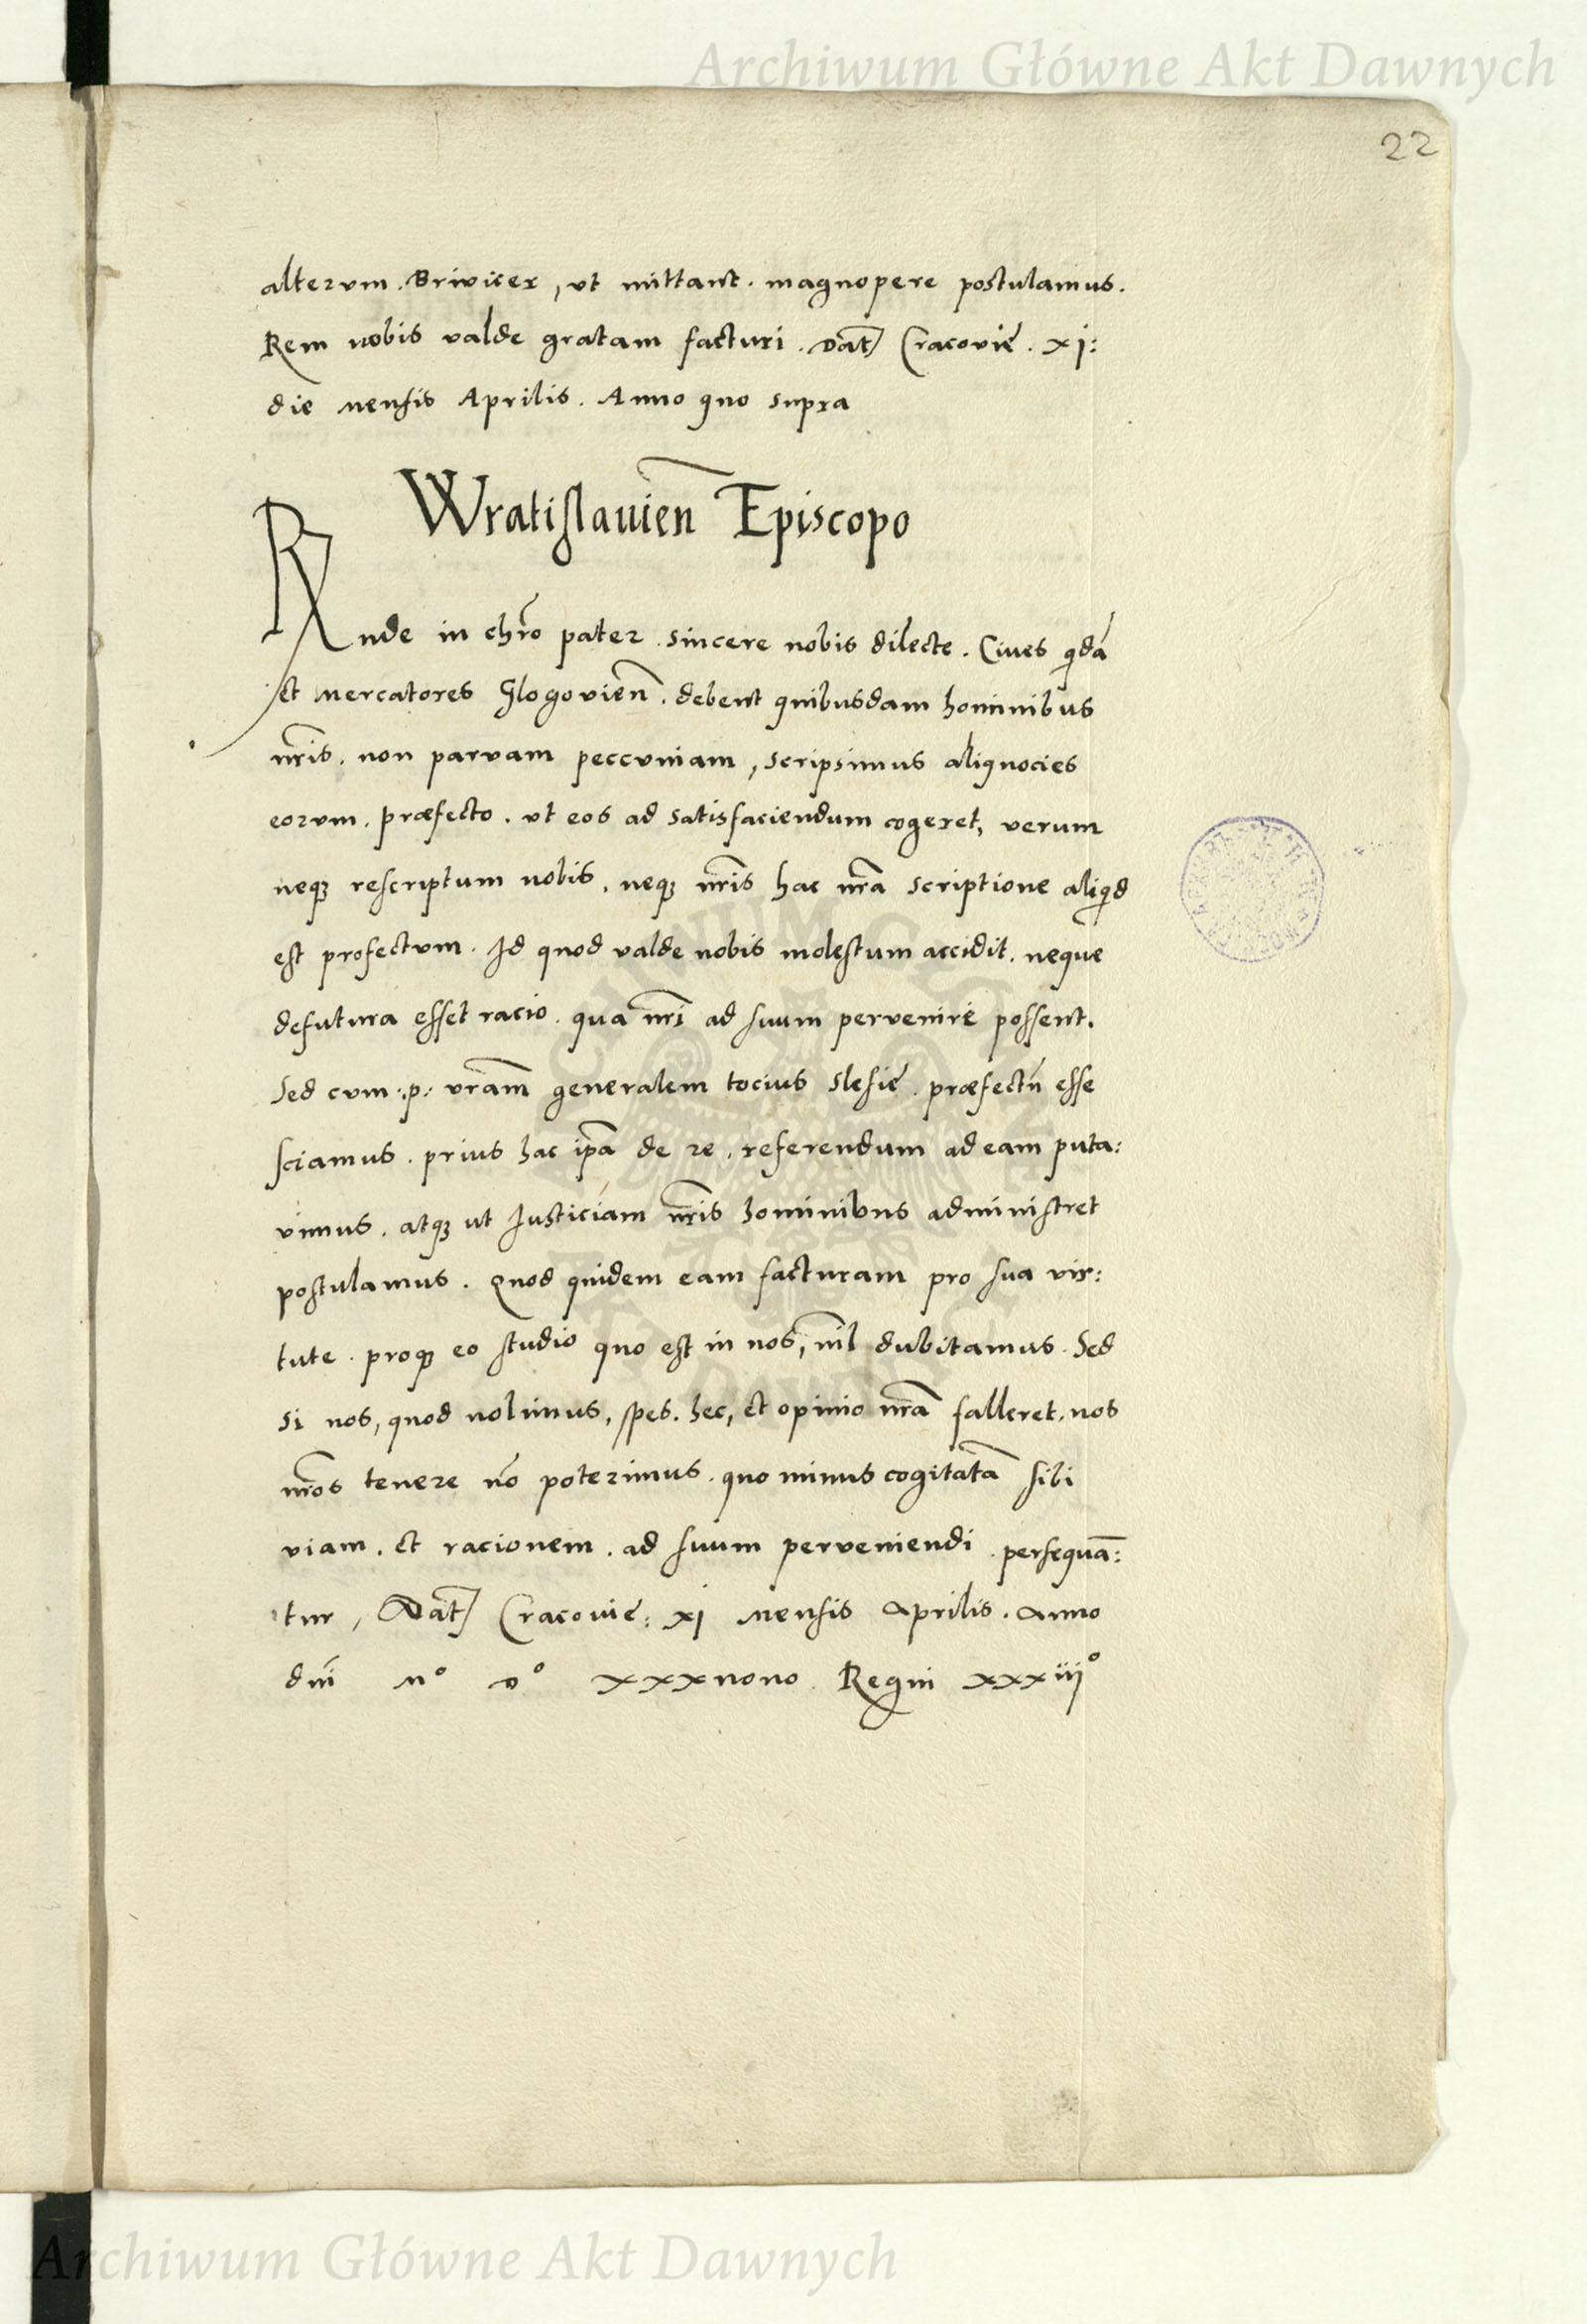 Archiwum Główne Akt Dawnych
22
alterum . Briwicex , ut mittant . magnopere postulamus .
Rem nobis valde gratam facturi . Dat̄ Cracovię . xj :
die mensis Aprilis . Anno quo supra
Wratislauien̄ Episcopo
Rnde in chr̄o pater . sincere nobis dilecte . Ciues qdā
et mercatores Glogovien̄ . debent quibusdam hominibus
nr̄is . non parvam peccuniam , scripsimus aliquocies
eorum . præfecto . ut eos ad satisfaciendum cogeret , verum
neqꝫ rescriptum nobis , neqꝫ nr̄is hac nr̄a scriptione aliqd
est profectum . Id quod valde nobis molestum accidit . neque
defutura esset racio . qua nr̄i ad suum pervenire possent .
Sed cum : p : vr̄am generalem tocius Slesię . præfectū esse
sciamus . prius hac ip̄a de re . referendum ad eam puta :
vimus . atqꝫ ut Iusticiam nr̄is hominibus administret
postulamus . Quod quidem eam facturam pro sua vir :
tute . proqꝫ eo studio quo est in nos , nīl dubitamus . Sed
si nos , quod nolimus , spes . hec , et opinio nr̄a falleret . nos
nr̄os tenere nō poterimus . quo minus cogitatā sibi
viam . et racionem . ad suum perveniendi . persequā :
tur , Dat̄ Cracovie : xj mensis Aprilis . Anno
dn̄i M° D° xxxnono . Regni xxxiij°
Archiwum Główne Akt Dawnych